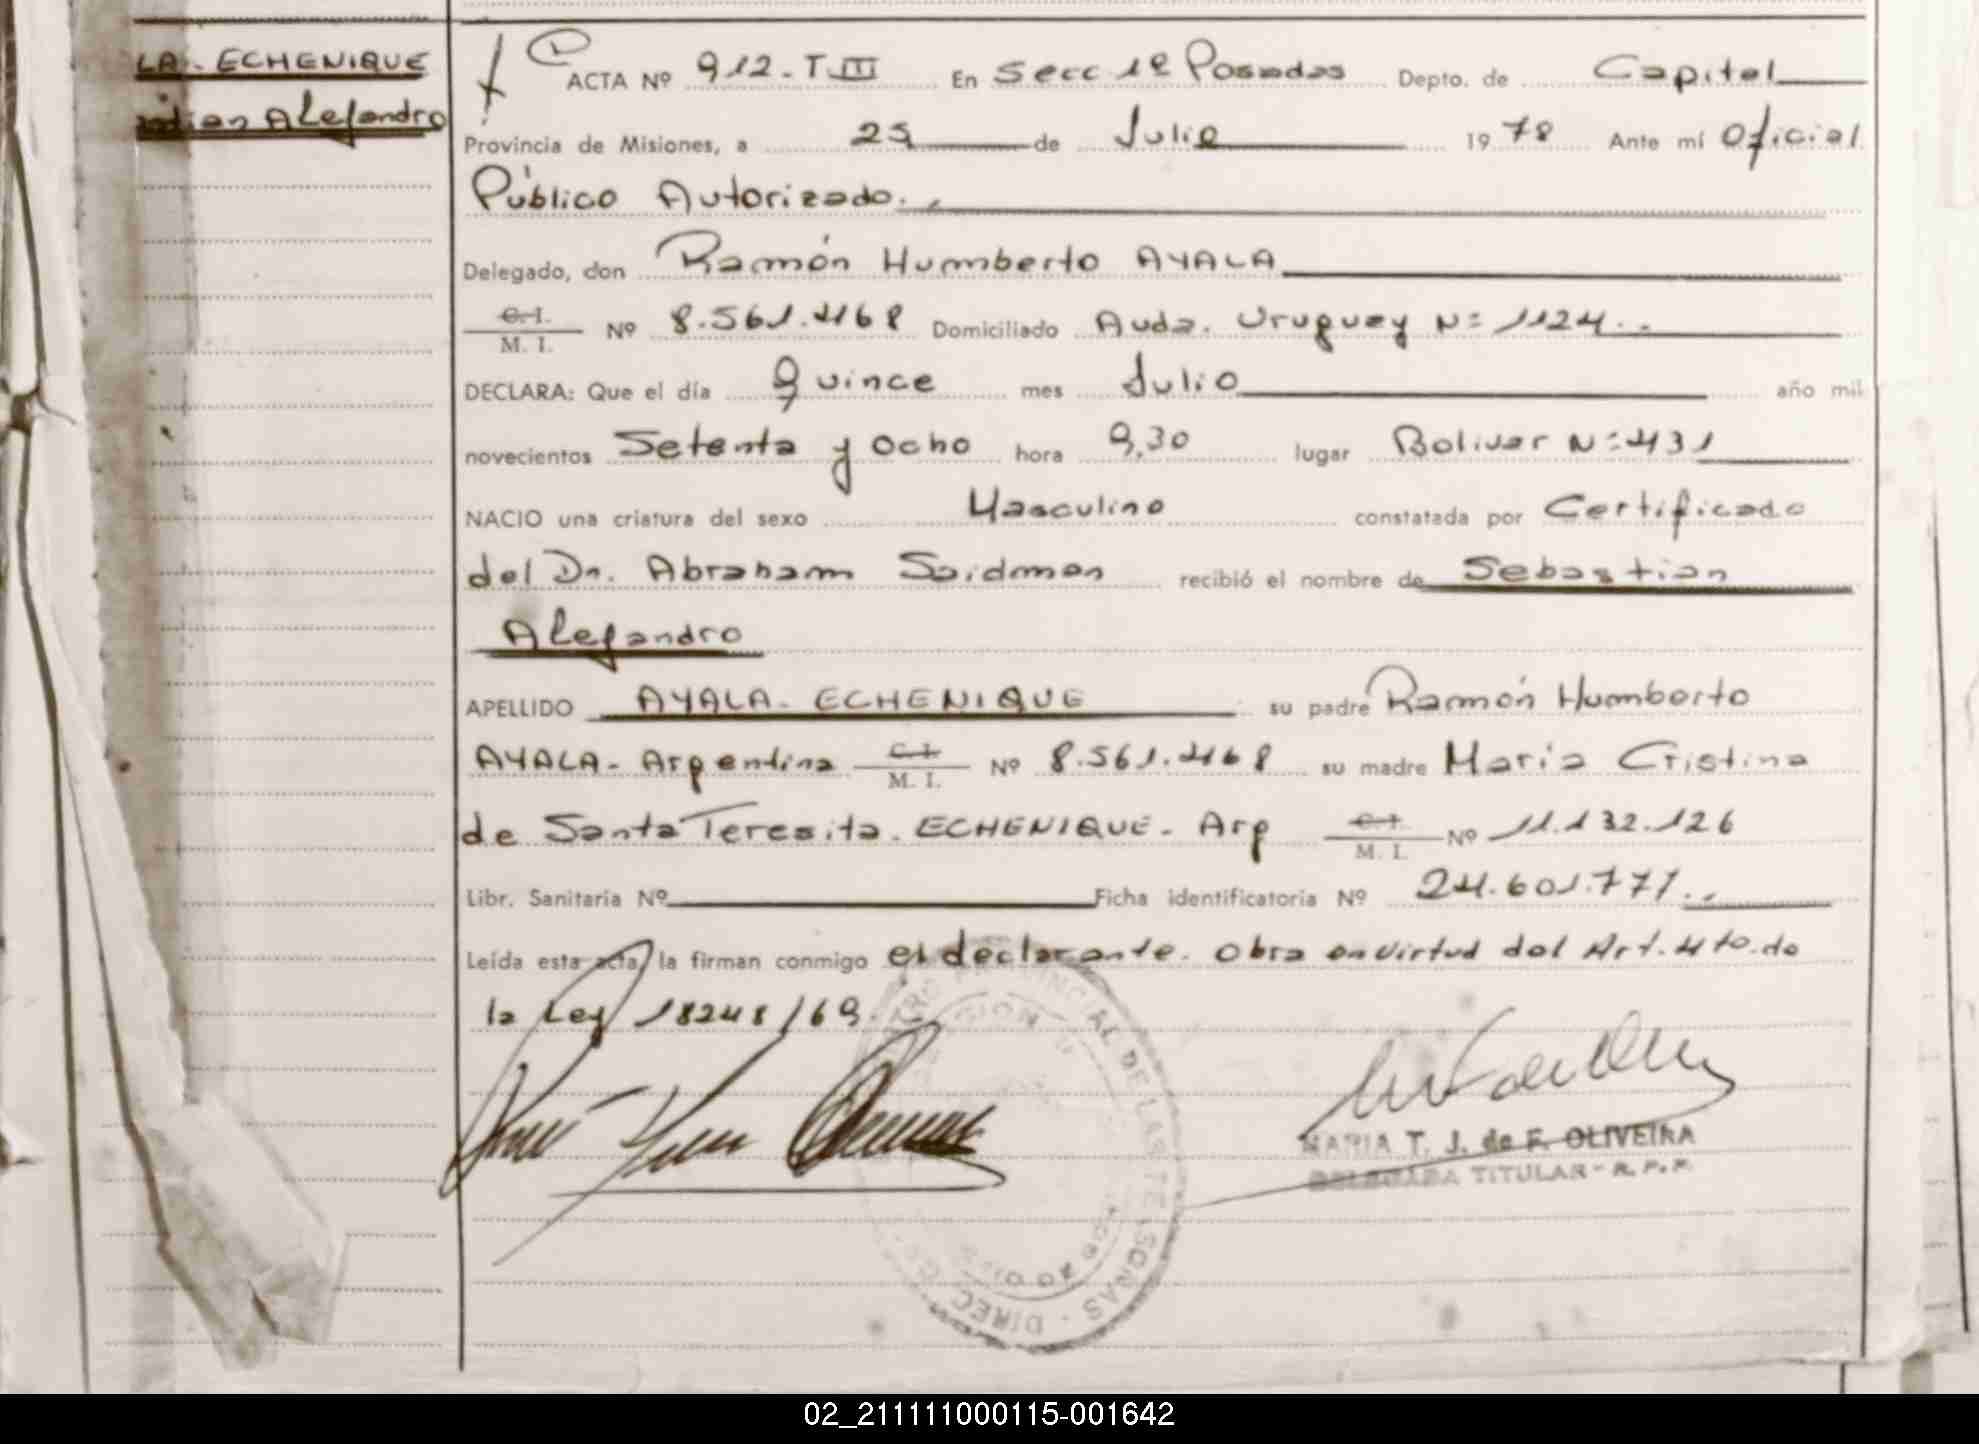 LA. ECHENIQUE
Alejandro
ACTA Nº 912-T.III En Secc 1º Posadas Depto. de Capital
Provincia de Misiones, a 25 de Julio 1978 Ante mí Oficial
Público Autorizado.
Delegado, don Ramón Humberto AYALA
C. I. M. I. Nº 8.561.468 Domiciliado Avda. Uruguay Nº 1124..
DECLARA: Que el día Quince mes Julio año mil
novecientos Setenta y Ocho hora 9,30 lugar Bolivar Nº 431
NACIO una criatura del sexo Masculino constatada por Certificado
del Dr. Abraham Saidman recibió el nombre de Sebastian
Alejandro
APELLIDO AYALA-ECHENIQUE su padre Ramón Humberto
AYALA-Argentina C. I. M. I. Nº 8.561.468 su madre María Cristina
de Santa Teresita. ECHENIQUE- Arg C. I. M. I. Nº 11.132.126
Libr. Sanitaria Nº Ficha identificatoria Nº 24.601.771..
Leída esta acta, la firman conmigo el declarante. Obra en virtud del Art. 4to. de
la Ley 18248/69.
MARIA T. J. de F. OLIVEIRA
DELEGADA TITULAR - R. P. P.
02_211111000115-001642